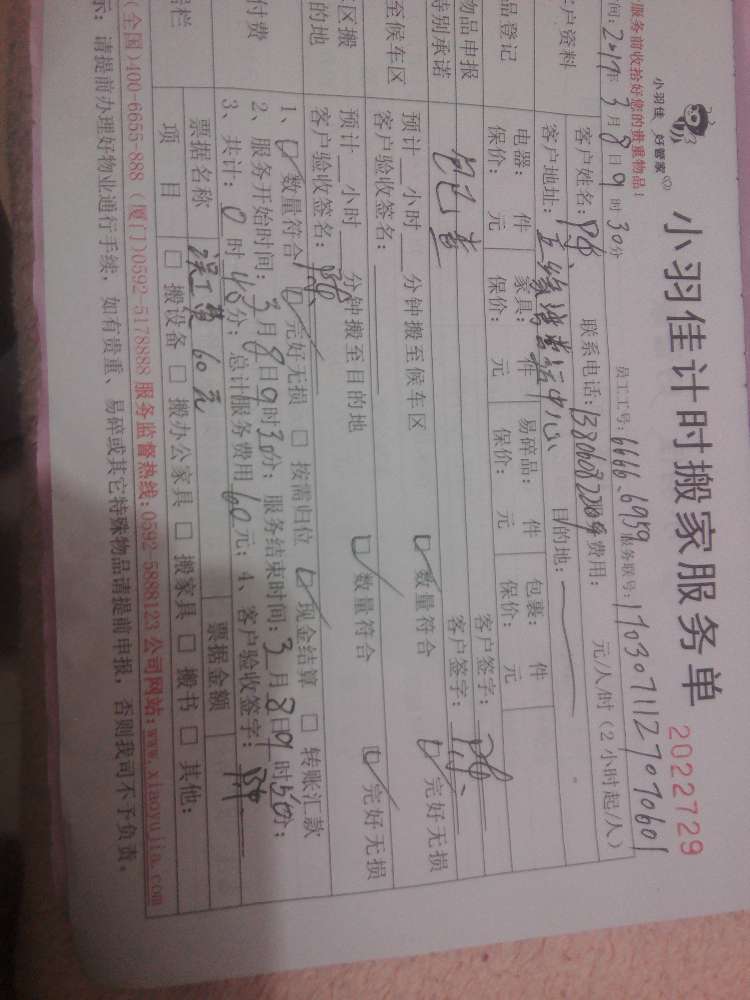 小羽佳 好管家
小羽佳计时搬家服务单
2022729
服务前收拾好您的贵重物品!
员工工号: 6666、6959 服务联号: 1703071127070601
间: 2017年 3月 8日 9时 30分
户资料
客户姓名:
联系电话:
费用: 元/人/时 (2小时起/人)
客户地址:
目的地:
品登记
电器: 件 家具: 件 易碎品: 件 包裹: 件
保价: 元 保价: 元 保价: 元 保价: 元
物品申报
客户签字:
特别承诺
已已者
客户签字:
至候车区
预计 小时 分钟搬至候车区
数量符合
完好无损
客户验收签名:
区搬
的地
预计 小时 分钟搬至目的地
数量符合
完好无损
客户验收签名:
付费
1、 数量符合 完好无损 按需归位 现金结算 转账汇款
2、服务开始时间: 3月8日9时30分; 服务结束时间: 3月8日9时50分;
3、共计: 0时 分; 总计服务费用 60元; 4、客户验收签字:
票据名称
误工费60元
票据金额
据栏
项 目
搬设备 搬办公家具 搬家具 搬书 其他:
(全国)400-6655-888 (厦门)0592-5178888 服务监督热线:0592-5888123 公司网站:www.xiaoyujia.com
示: 请提前办理好物业通行手续, 如有贵重、易碎或其它特殊物品请提前申报, 否则我司不予负责.